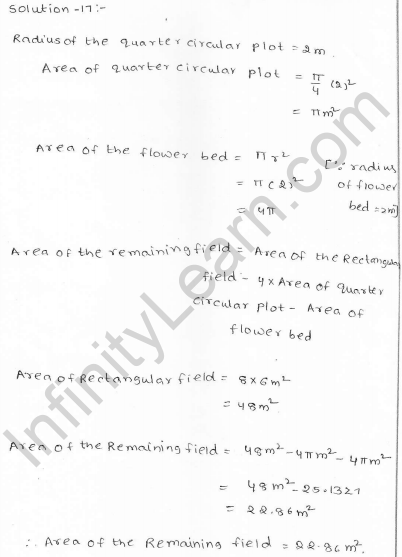 Solution -17:-
Radius of the quarter circular plot = 2m.
Area of quarter circular plot = π/4 (2)²
= πm²
Area of the flower bed = πr² [∵ radius
= π(2)² of flower
= 4π bed = 2m]
Area of the remaining field = Area of the Rectangular
field - 4 × Area of quarter
circular plot - Area of
flower bed
Area of Rectangular field = 8×6m²
= 48m²
Area of the Remaining field = 48m² - 4πm² - 4πm²
= 48m² - 25.1327
= 22.86m²
∴ Area of the Remaining field = 22.86m².
InfinityLearn.com